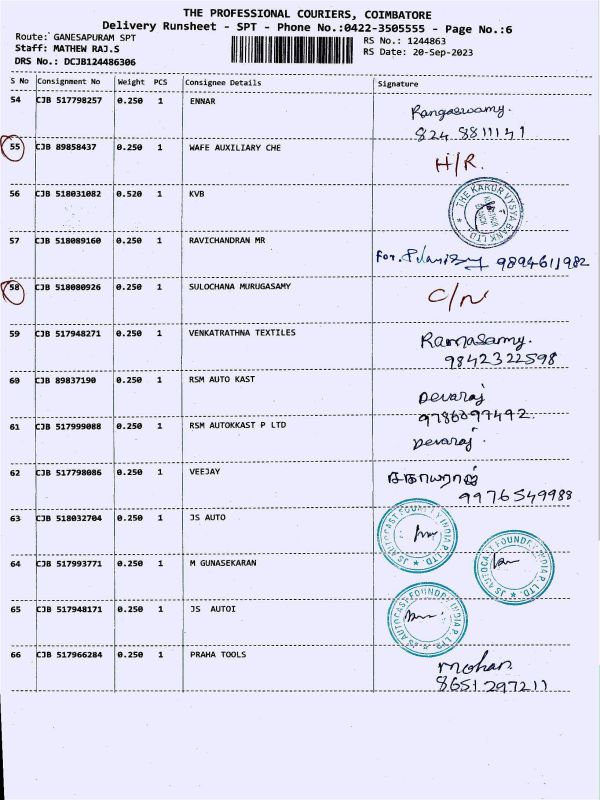 THE PROFESSIONAL COURIERS, COIMBATORE
Delivery Runsheet - SPT - Phone No.:0422-3505555 - Page No.:6
Route: GANESAPURAM SPT
RS No.: 1244863
Staff: MATHEW RAJ.S
RS Date: 20-Sep-2023
DRS No.: DCJB124486306
S No Consignment No Weight PCS Consignee Details Signature
54 CJB 517798257 0.250 1 ENNAR
Rangaswamy.
824 8811141
55 CJB 89858437 0.250 1 WAFE AUXILIARY CHE
H/R.
56 CJB 518031082 0.520 1 KVB
THE KARUR VYSYA BANK LTD.
57 CJB 518089160 0.250 1 RAVICHANDRAN MR
For. 9894611982
58 CJB 518080926 0.250 1 SULOCHANA MURUGASAMY
C/N
59 CJB 517948271 0.250 1 VENKATRATHNA TEXTILES
Ramasamy.
9842322598
60 CJB 89837190 0.250 1 RSM AUTO KAST
Devaraj
9786097492
61 CJB 517999088 0.250 1 RSM AUTOKKAST P LTD
Devaraj.
62 CJB 517798086 0.250 1 VEEJAY
சகாயராஜ்
9976549988
63 CJB 518032704 0.250 1 JS AUTO
JS AUTOCAST FOUNDRY INDIA P. LTD.
64 CJB 517993771 0.250 1 M GUNASEKARAN
JS AUTOCAST FOUNDRY INDIA P. LTD.
65 CJB 517948171 0.250 1 JS AUTOI
JS AUTOCAST FOUNDRY INDIA P. LTD.
66 CJB 517966284 0.250 1 PRAHA TOOLS
mohan
8651297211